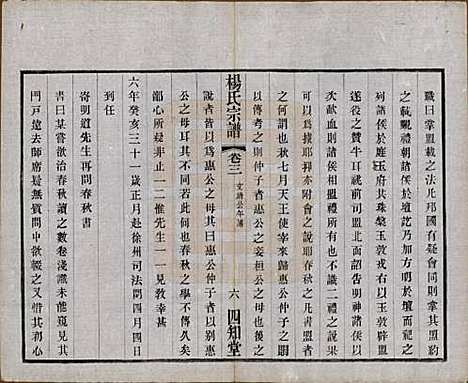 職曰掌盟載之法凡邦國有疑會同則掌其盟約
之載覲禮朝諸侯於廷乃加方明而祀之此會同
列諸侯於庭玉府共珠槃玉敦戎右以玉敦辟盟
遂役之贊牛耳視前司盟北面詔神諸侯以
次歃血則諸侯諸侯相盟所有也不識二禮之說果
可以為據耶抑亦附會之說耶春秋之凡書盟者
之何謂也秋七月天王使宰來歸惠公仲子之賵
以傳考之則仲子者惠公之妾桓公之母也後之
說者皆以為惠公之母其曰惠公仲子者以別惠
公之母耳其不同何也春秋之學不傳久矣
鄙心所疑非止一二惟先生一一見教幸甚
六年癸亥三十一歲正月赴徐州司法問四月四日
到任
寄明道先生再問春秋書
書曰某嘗欲治春秋讀之數卷淺識未能窺見其
門戶遠去師席疑無質問中欲輟之又惜其利心
楊氏宗譜
卷三
文靖公年譜
六
四知堂